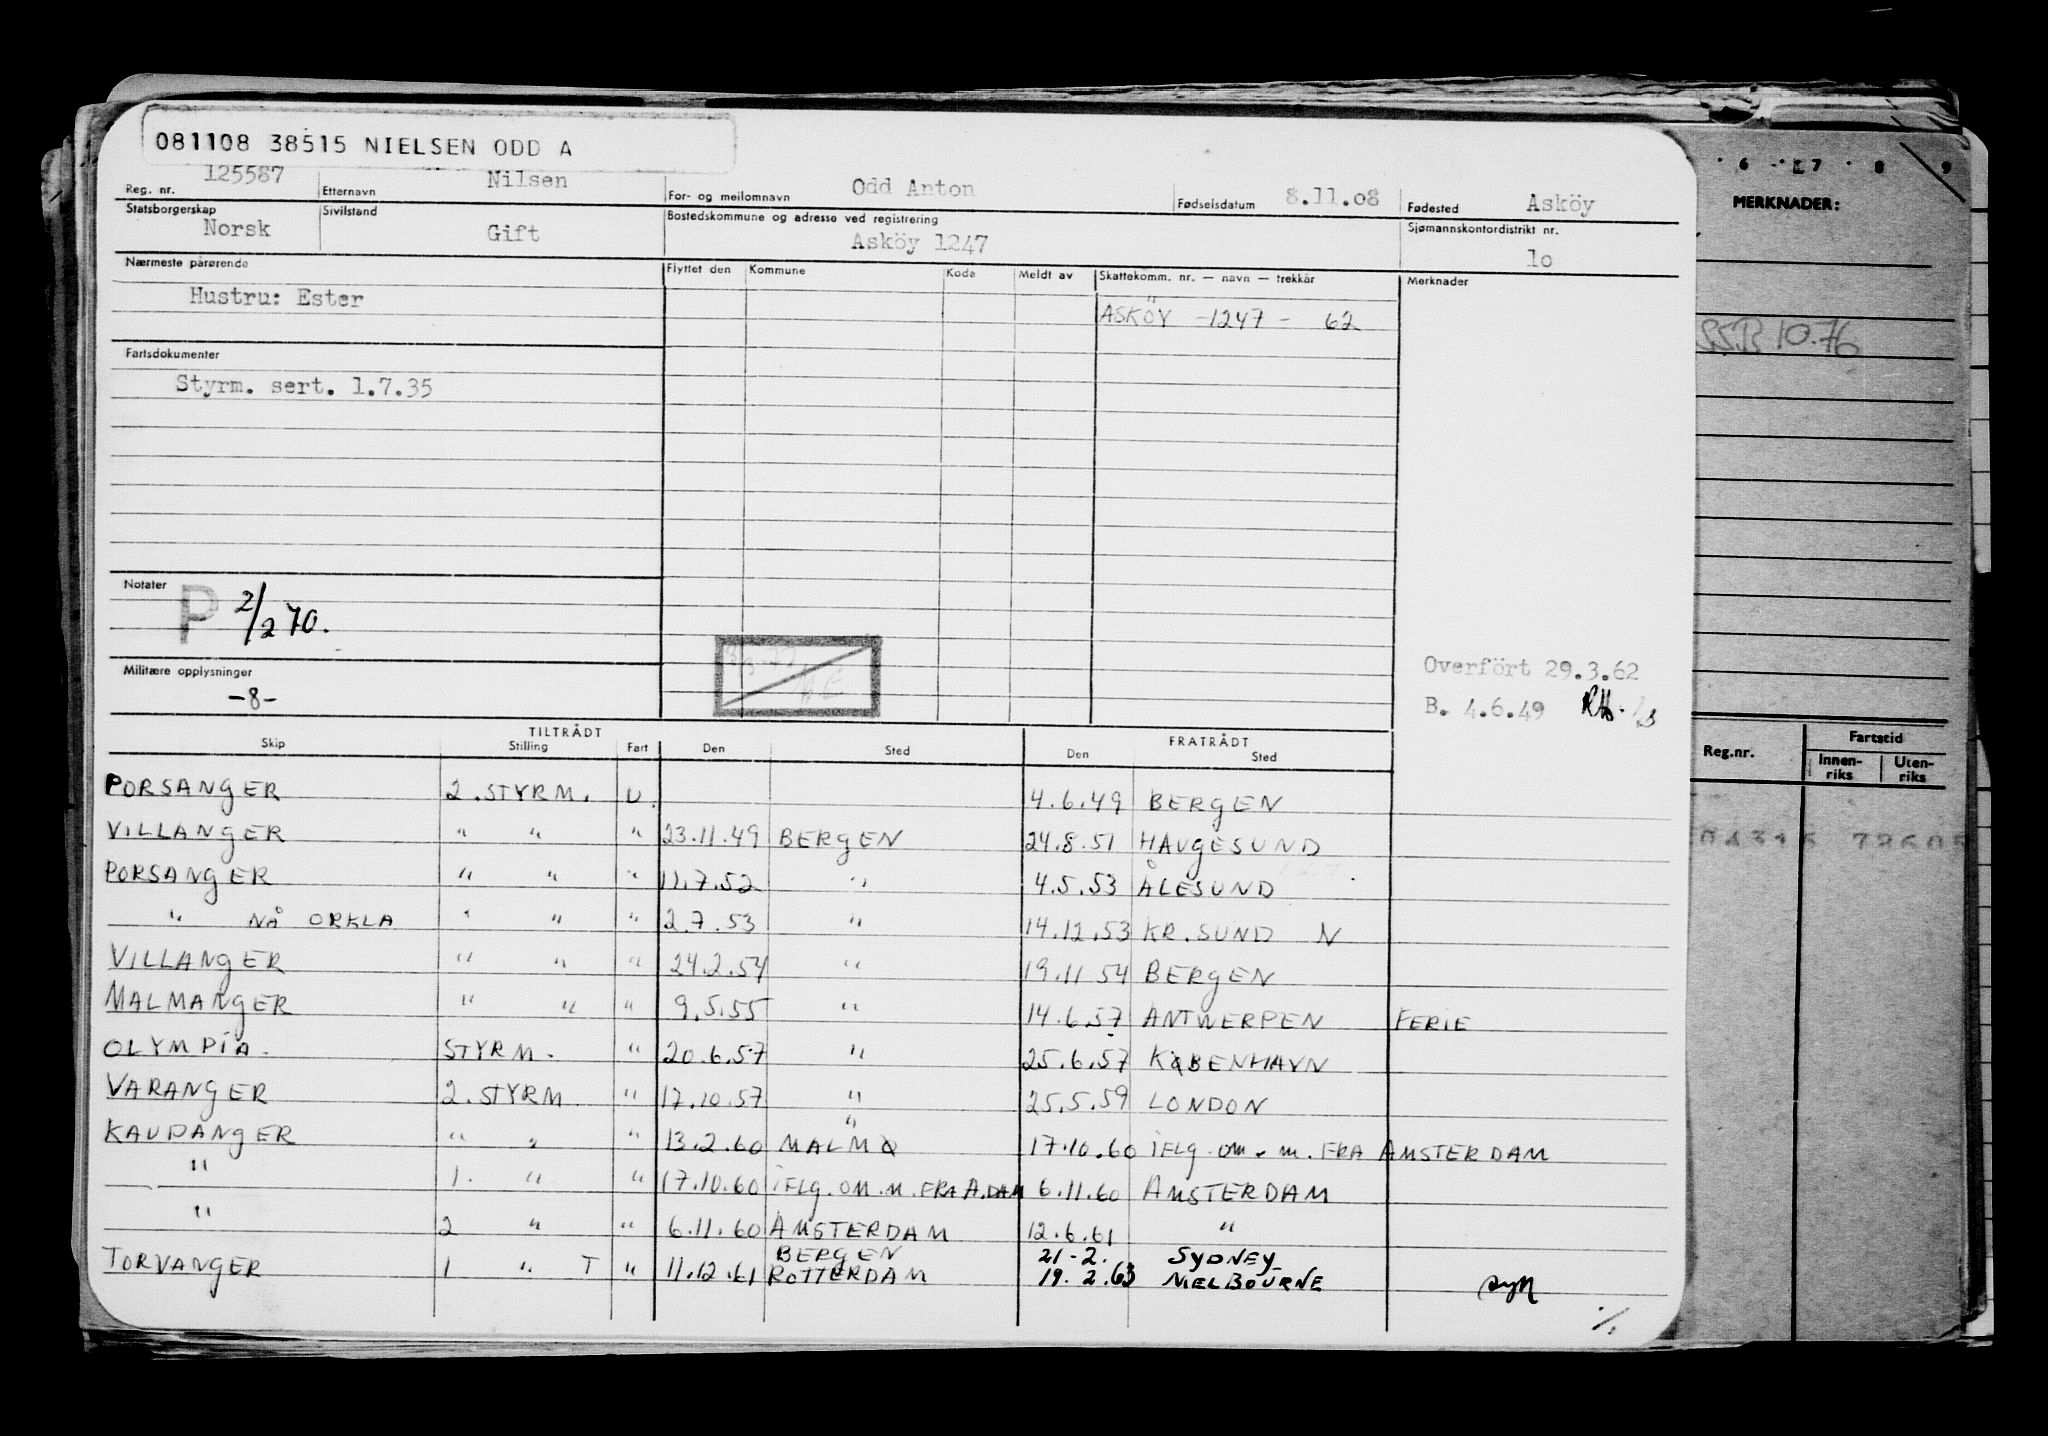 081108 38515 NIELSEN ODD A
Reg. nr. 125587 Etternavn Nilsen For- og mellomnavn Odd Anton Fødselsdatum 8.11.08 Fødested Asköy
Statsborgerskap Norsk Sivilstand Gift Bostedskommune og adresse ved registrering Asköy 1247 Sjømannskontordistrikt nr. 10
Nærmeste pårørende Flyttet den Kommune Kode Meldt av Skattekomm. nr. — navn — trekkår Merknader
Hustru: Ester
ASKÖY -1247- 62
Fartsdokumenter
Styrm. sert. 1.7.35
Notater
P 2/2 70.
Militære opplysninger
-8-
Overfört 29.3.62
B. 4.6.49
TILTRÅDT FRATRÅDT
Skip Stilling Fart Den Sted Den Sted
PORSANGER 2. STYRM. U. 4.6.49 BERGEN
VILLANGER " " " 23.11.49 BERGEN 24.8.51 HAUGESUND
PORSANGER " " " 11.7.52 " 4.5.53 ÅLESUND
" NÅ ORKLA " " " 2.7.53 " 14.12.53 KR.SUND N
VILLANGER " " " 24.2.54 " 19.11.54 BERGEN
MALMANGER " " " 9.5.55 " 14.6.57 ANTWERPEN FERIE
OLYMPIA. STYRM. " 20.6.57 " 25.6.57 KØBENHAVN
VARANGER 2. STYRM " 17.10.57 " 25.5.59 LONDON
KAUPANGER " " " 13.2.60 MALMØ 17.10.60 IFLG. OM. M. FRA AMSTERDAM
" 1. " " 17.10.60 IFLG. OM. M. FRA A.DAM 6.11.60 AMSTERDAM
" 2 " " 6.11.60 AMSTERDAM 12.6.61 "
BERGEN 21-2. SYDNEY
TORVANGER 1 " T " 11.12.61 ROTTERDAM 19.2.63 MELBOURNE
6 7 8 9
MERKNADER:
10.76
Reg.nr. Fartstid
Innen-riks Uten-riks